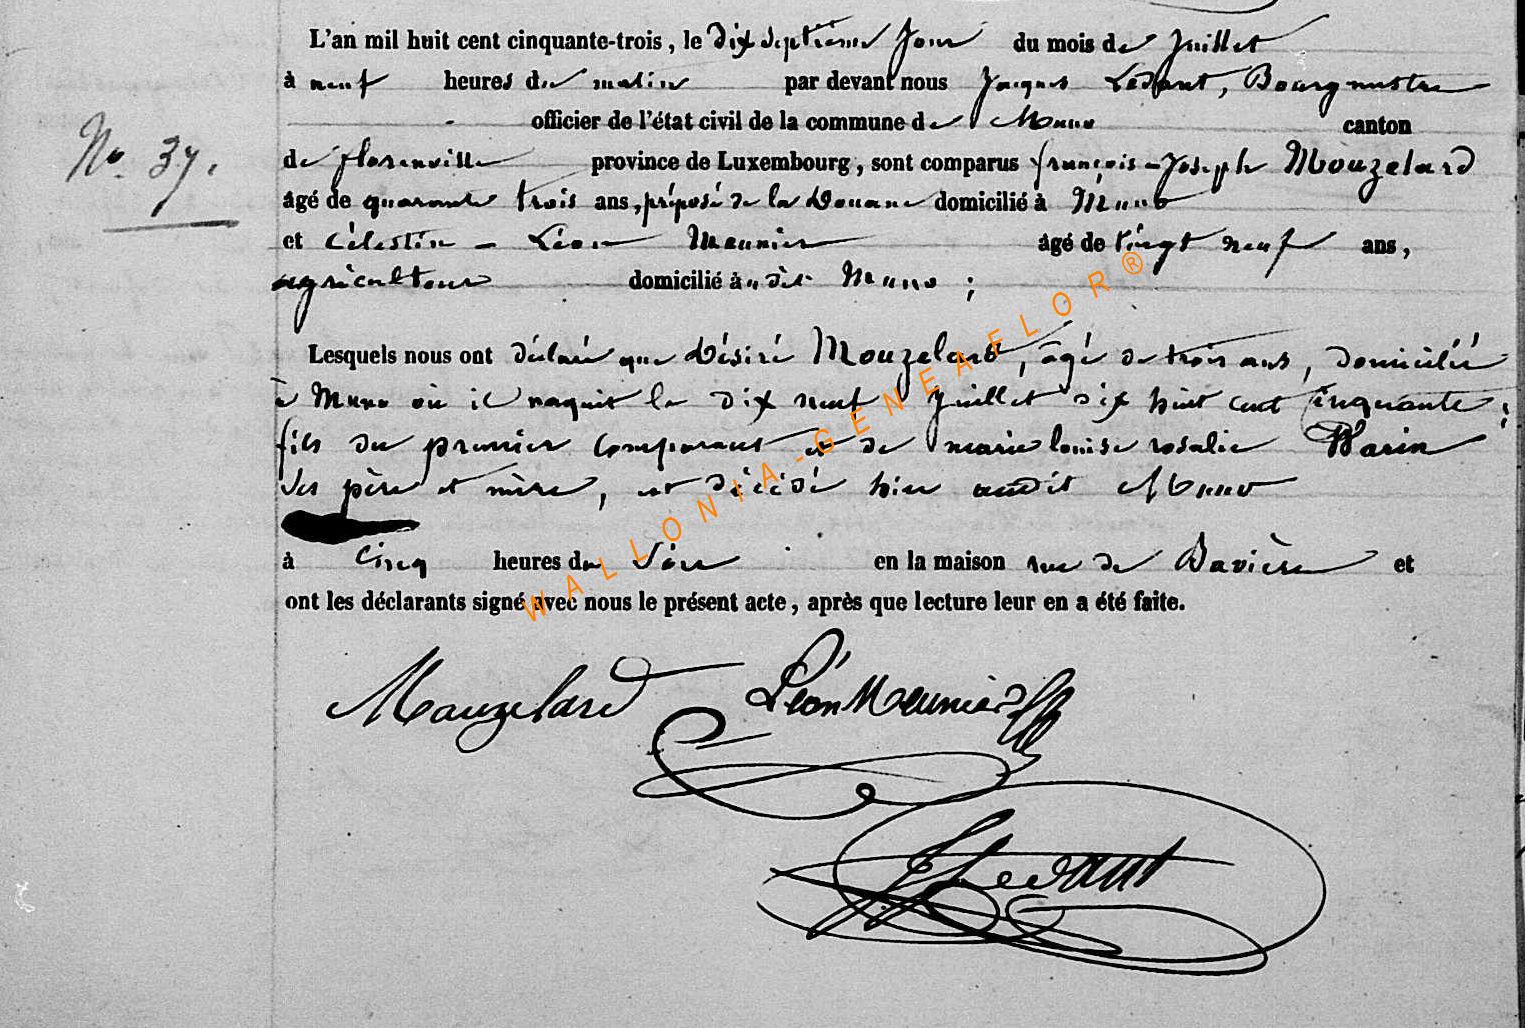 L'an mil huit cent cinquante-trois, le dix septième jour du mois de Juillet
à neuf heures du matin par devant nous Jacques Ledant, Bourgmestre
officier de l'état civil de la commune de Muno canton
No. 37.
de florenville province de Luxembourg, sont comparus françois-Joseph Mouzelard
âgé de quarante trois ans, préposé de la Douane domicilié à Muno
et Célestin - Léon Meunier âgé de vingt neuf ans,
agriculteur domicilié audit Muno ;
Lesquels nous ont déclaré que Désiré Mouzelard, âgé de trois ans, domicilié
à Muno où il naquit le dix neuf Juillet dix huit cent cinquante ;
fils du premier comparant et de marie louise rosalie Warin
ses père et mère, est décédé hier audit Muno
à cinq heures du soir en la maison rue de Bavière et
ont les déclarants signé avec nous le présent acte, après que lecture leur en a été faite.
Mouzelard Léon Meunier
JLedant
WALLONIA-GENEAFLOR®